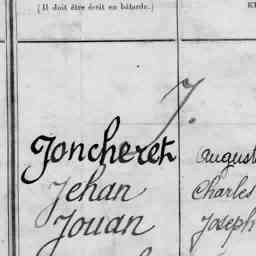 (Il doit être écrit en bâtarde.)
J.
Joncheret August
Jehan Charles
Jouan Joseph